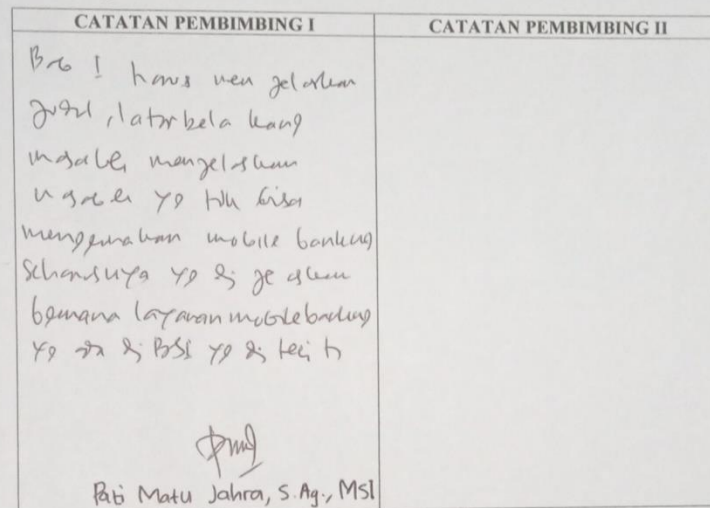 CATATAN PEMBIMBING I
CATATAN PEMBIMBING II
Bab I harus menjelaskan
judul, latar belakang
masalah, menjelaskan
yg tdk bisa
menggunakan mobile banking
seharusnya yg di jelaskan
layanan mobile banking
yg di BSI yg di teliti
Pati Matu Jahra, S.Ag., MSI